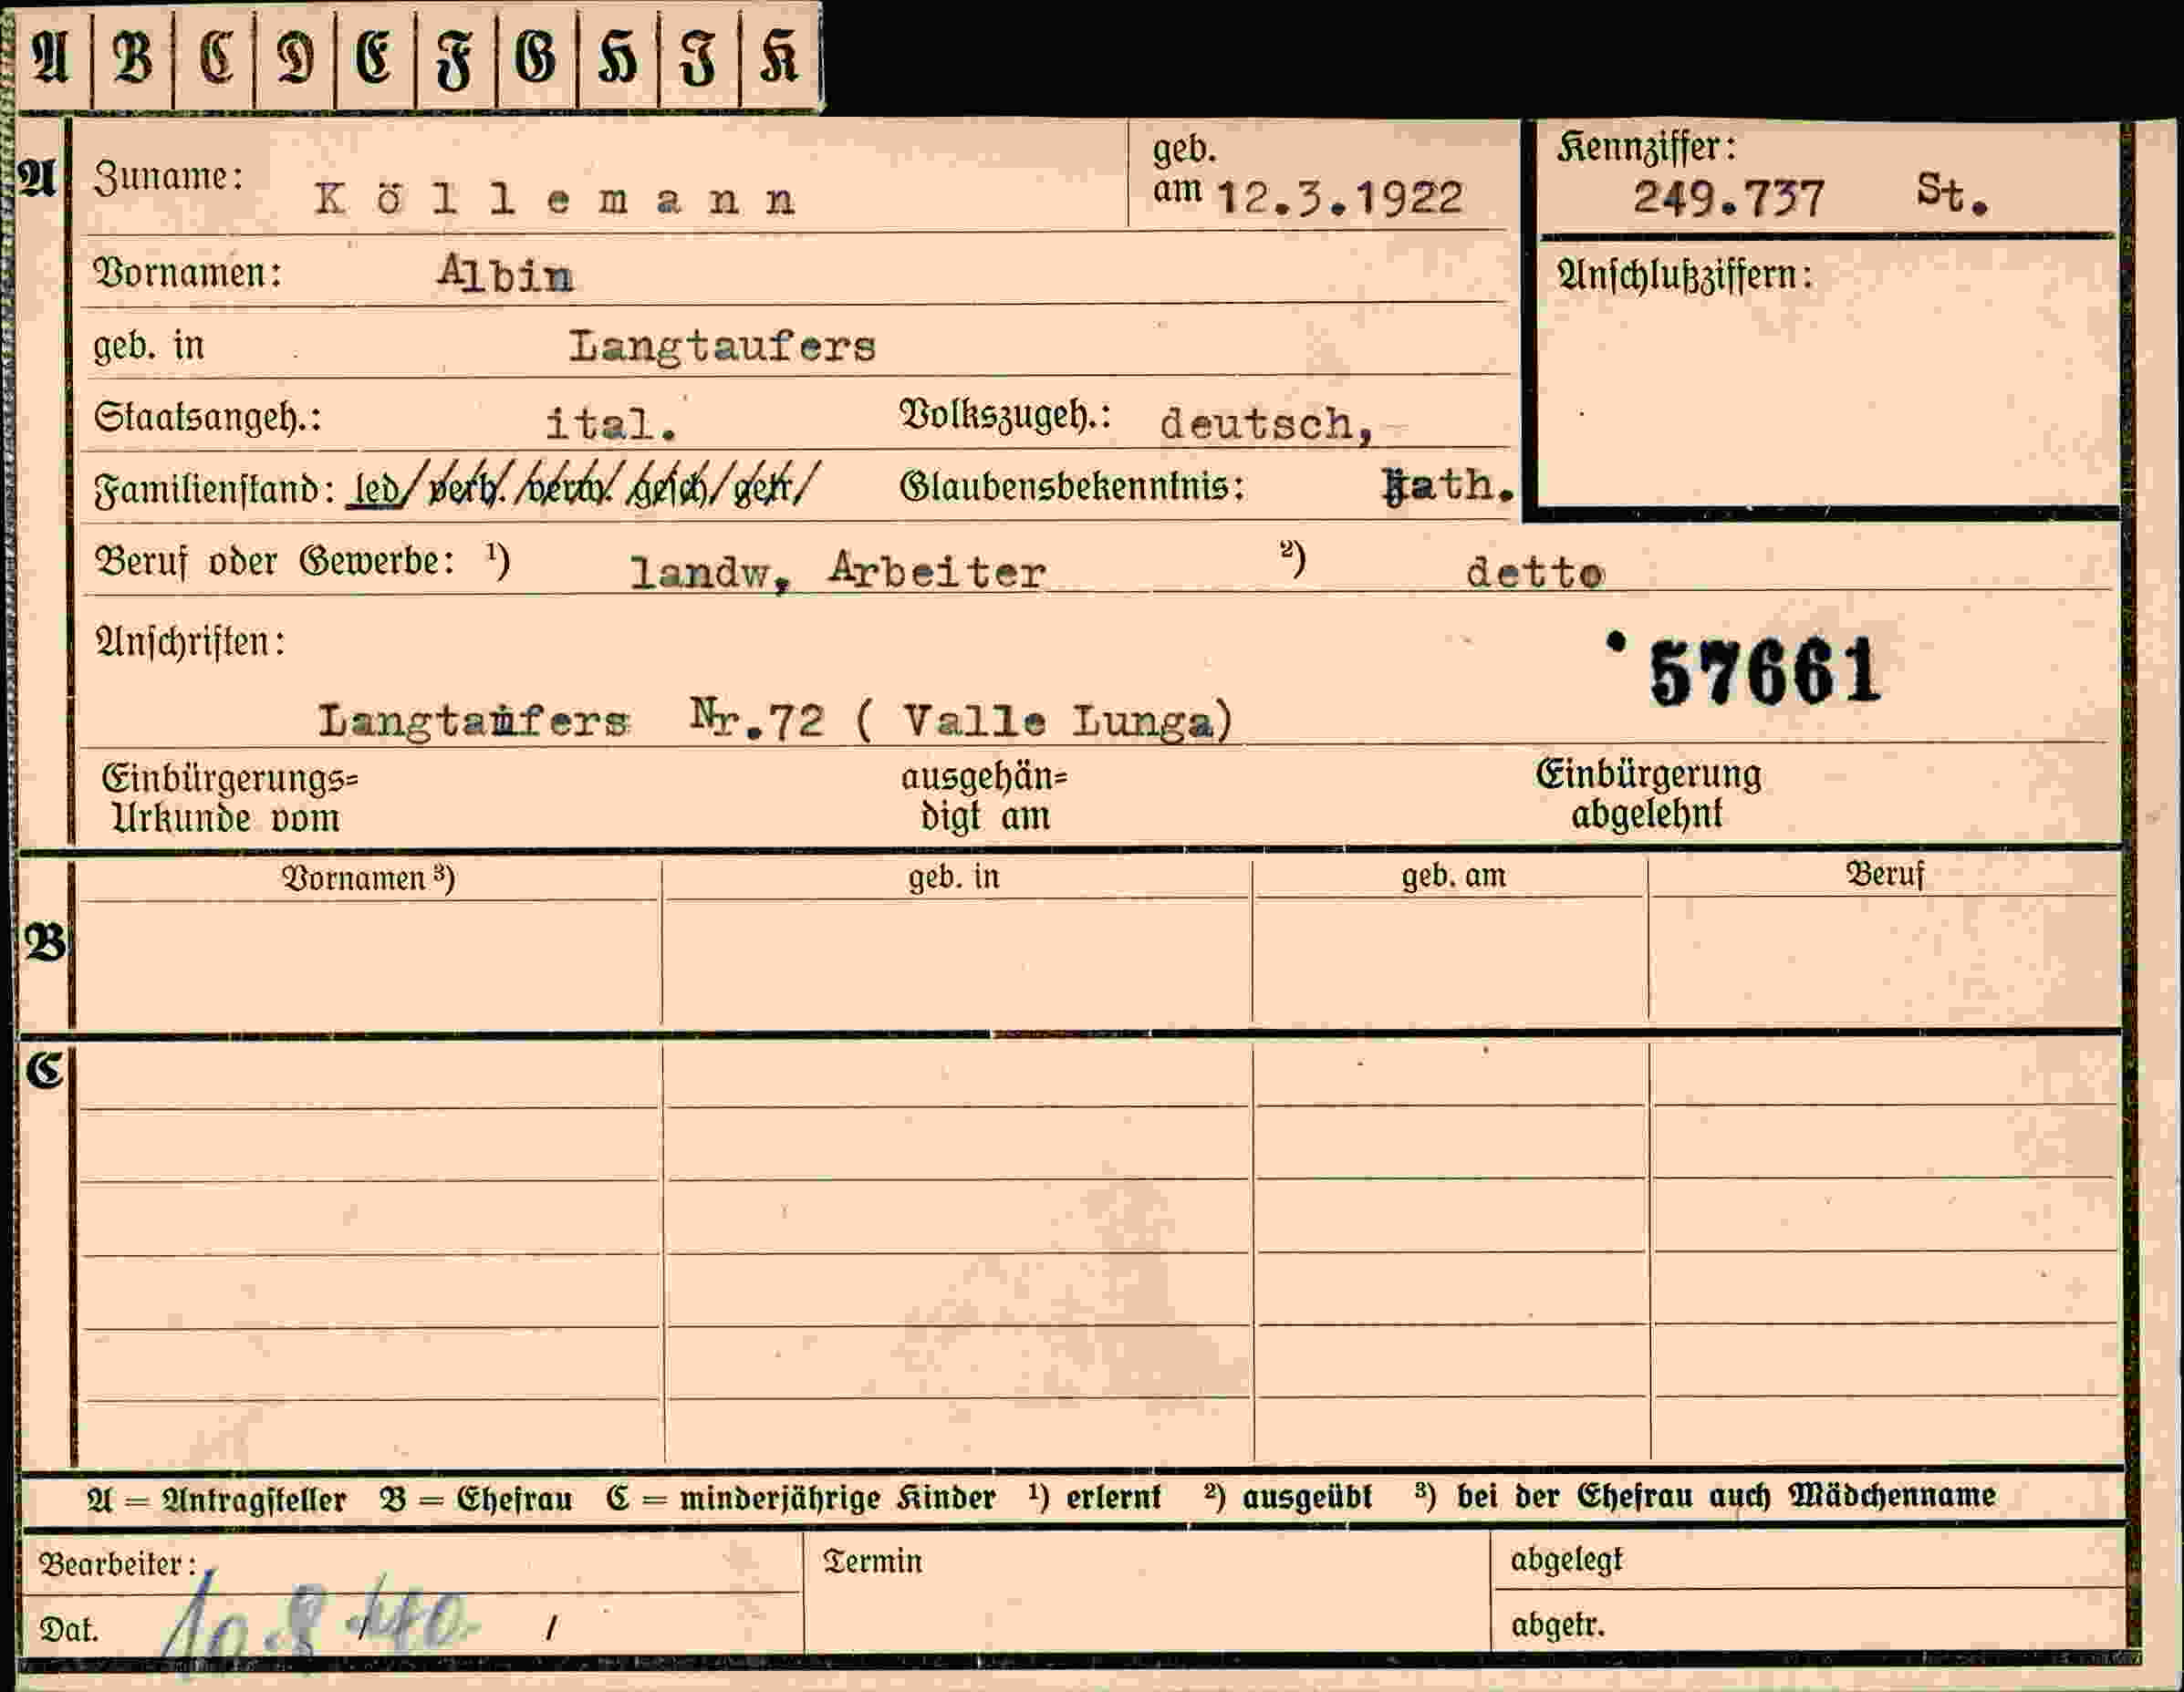 A B C D E F G H I K
A Zuname: Köllemann geb. am 12.3.1922 Kennziffer: 249.737 St.
Vornamen: Albin Anschlußziffern:
geb. in Langtaufers
Staatsangeh.: ital. Volkszugeh.: deutsch,
Familienstand: led/ verh. /verw. /gesch/ getr/ Glaubensbekenntnis: kath.
Beruf oder Gewerbe: ¹) landw, Arbeiter ²) detto
Anschriften: 57661
Langtaufers Nr.72 ( Valle Lunga)
Einbürgerungs= ausgehän= Einbürgerung
Urkunde vom digt am abgelehnt
Vornamen ³) geb. in geb. am Beruf
B
C
A = Antragsteller B = Ehefrau C = minderjährige Kinder ¹) erlernt ²) ausgeübt ³) bei der Ehefrau auch Mädchenname
Bearbeiter: Termin abgelegt
Dat. 10.8 40. / abgetr.